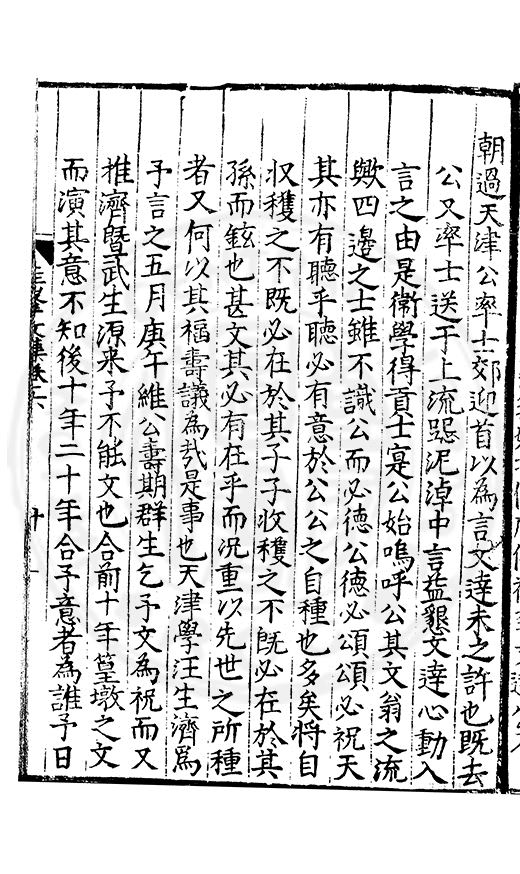 朝過天津公率士郊迎首以為言文達未之許也既去
公又率士送于上流跽泥淖中言益懇文達心動入
言之由是衛學得貢士寔公始嗚呼公其文翁之流
歟四邊之士雖不識公而必德公德必頌頌必祝天
其亦有聽乎聽必有意於公公之自種也多矣將自
収穫之不既必在於其子子收穫之不既必在於其
孫而鉉也甚文其必有在乎而况重以先世之所種
者又何以其福壽議為㢤是事也天津學汪生濟為
予言之五月庚午維公壽期群生乞予文為祝而又
推濟暨武生源来予不能文也合前十年篁墩之文
而演其意不知後十年二十年合予意者為誰予日
文集卷六
十